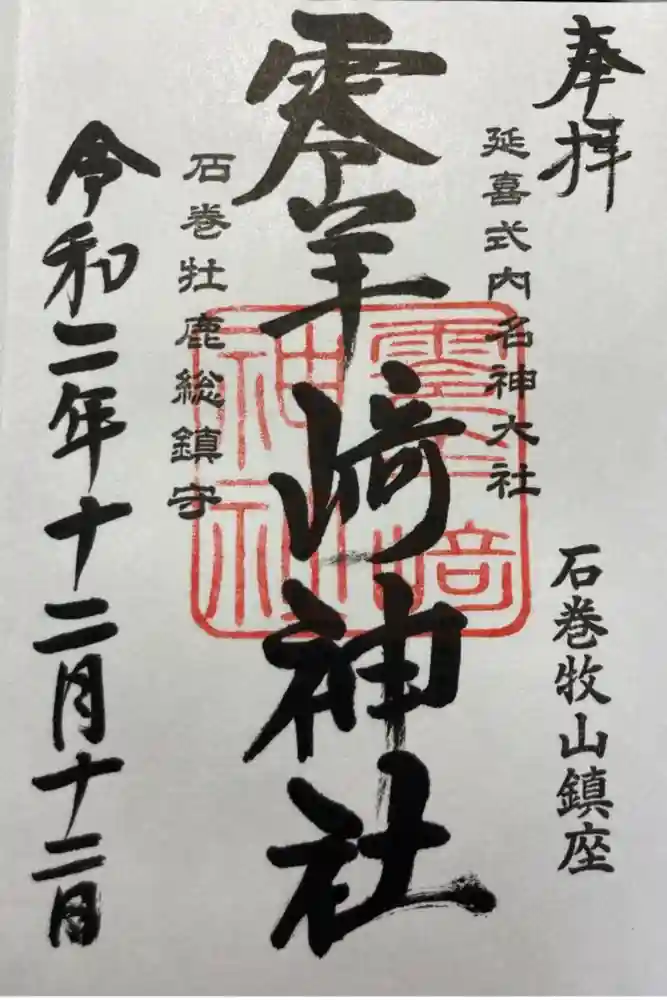 奉拝
石巻牧山鎮座
延喜式内名神大社
零羊崎神社
石巻牡鹿総鎮守
令和二年十二月十二日
零羊崎神社